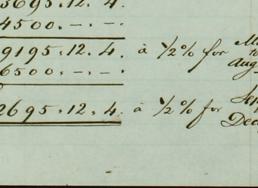 3695.12.4.
4500.-.-.
9195.12.4. à 1/2% for
6500.-.-.
2695.12.4. à 1/2% for